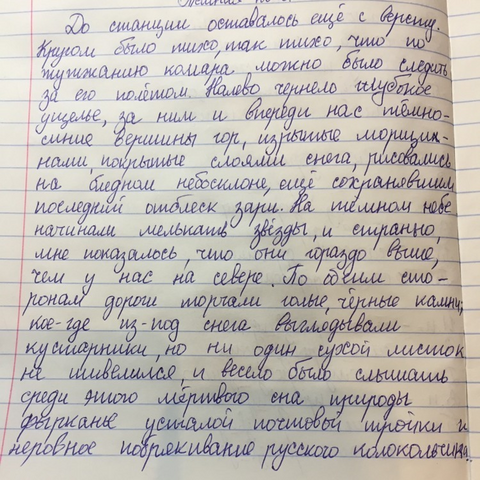 До станции оставалось ещё с версту.
Кругом было тихо, так тихо, что по
жужжанию комара можно было следить
за его полётом. Налево чернело глубокое
ущелье, за ним и впереди нас тёмно-
синие вершины гор, изрытые морщин-
нами, покрытые слоями снега, рисовались
на бледном небосклоне, ещё сохранявшим
последний отблеск зари. На тёмном небе
начинали мелькать звёзды, и странно,
мне показалось, что они гораздо выше,
чем у нас на севере. По обеим сто-
ронам дороги торчали голые, чёрные камни;
кое-где из-под снега выглядывали
кустарники, но ни один сухой листок
не шевелился, и весело было слышать
среди этого мёртвого сна природы
фырканье усталой почтовой тройки и
неровное побрякивание русского колокольчика.